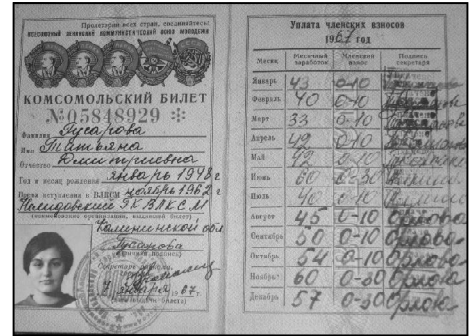 Пролетарии всех стран, соединяйтесь!
ВСЕСОЮЗНЫЙ ЛЕНИНСКИЙ КОММУНИСТИЧЕСКИЙ СОЮЗ МОЛОДЕЖИ
КОМСОМОЛЬСКИЙ БИЛЕТ
№ 05848929
Фамилия Гусарова
Имя Татьяна
Отчество Дмитриевна
Год и месяц рождения январь 1948 г
Время вступления в ВЛКСМ ноябрь 1962 г
Нелидовский ГК ВЛКСМ
(наименование организации, выдавшей билет)
Калининской обл
Гусарова
(личная подпись)
Секретарь райкома
января 1967 г.
Уплата членских взносов
1967 год
Месяц Месячный заработок Членский взнос Подпись секретаря
Январь 43 0-10
Февраль 40 0-10
Март 33 0-10
Апрель 42 0-10
Май 42 0-10
Июнь 60 0-30
Июль 40 0-10
Август 45 0-10 Орлова
Сентябрь 50 0-10 Орлова
Октябрь 54 0-10 Орлова
Ноябрь 60 0-30 Орлова
Декабрь 57 0-30 Орлова